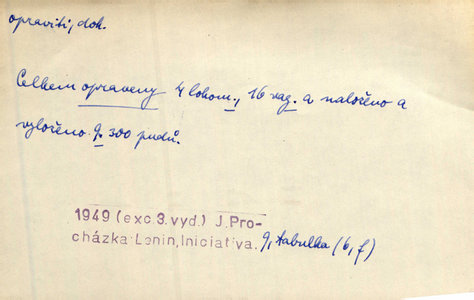 opraviti, dok.
Celkem opraveny 4 lokom., 16 vag. a naloženo a
vyloženo 9.300 pudů.
1949 (exc. 3. vyd.) J. Pro-
cházka: Lenin, Iniciativa. 9, tabulka (6, f)